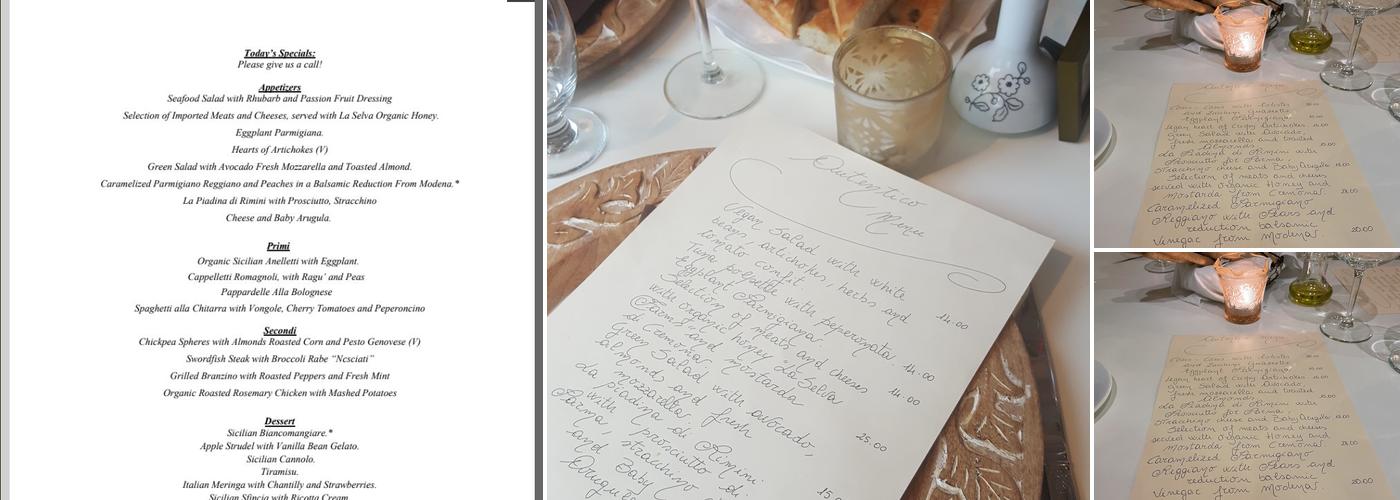 Today's Specials:
Please give us a call!
Appetizers
Seafood Salad with Rhubarb and Passion Fruit Dressing
Selection of Imported Meats and Cheeses, served with La Selva Organic Honey.
Eggplant Parmigiana.
Hearts of Artichokes (V)
Green Salad with Avocado Fresh Mozzarella and Toasted Almond.
Caramelized Parmigiano Reggiano and Peaches in a Balsamic Reduction From Modena.*
La Piadina di Rimini with Prosciutto, Stracchino
Cheese and Baby Arugula.
Primi
Organic Sicilian Anelletti with Eggplant.
Cappelletti Romagnoli, with Ragu' and Peas
Pappardelle Alla Bolognese
Spaghetti alla Chitarra with Vongole, Cherry Tomatoes and Peperoncino
Secondi
Chickpea Spheres with Almonds Roasted Corn and Pesto Genovese (V)
Swordfish Steak with Broccoli Rabe "Ncsciati"
Grilled Branzino with Roasted Peppers and Fresh Mint
Organic Roasted Rosemary Chicken with Mashed Potatoes
Dessert
Sicilian Biancomangiare.*
Apple Strudel with Vanilla Bean Gelato.
Sicilian Cannolo.
Tiramisu.
Italian Meringa with Chantilly and Strawberries.
Sicilian Sfincia with Ricotta Cream
Autentico
Menu
Vegan Salad with white
beans, artichokes, herbs and
tomato confit. 14.00
Tuna polpette with peperonata
Eggplant Parmigiana. 14.00
Selection of meats and cheeses
with organic honey "La Selva
Farms" and mostarda 14.00
di Cremona. 25.00
Green Salad with avocado,
almonds and fresh
mozzarella. 15.0
La piadina di Rimini
with prosciutto di
Parma, stracchino
and Baby
with lobster
Eggplant Parmigiana
Vegan heart of Crispy Artichokes.
Green Salad with Avocado,
fresh mozzarella and toasted
Almonds.
La Piadina di Rimini with
Prosciutto for Parma.
Stracchino cheese and Baby Arugula
Selection of meats and cheeses
served with Organic Honey and
Mostarda from Cremona.
Caramelized Parmigiano
Reggiano with Pears and
reduction balsamic 20.00
Vinegar from Modena.
with lobster
Eggplant Parmigiana
Vegan heart of Crispy Artichokes.
Green Salad with Avocado,
fresh mozzarella and toasted
Almonds.
La Piadina di Rimini with
Prosciutto for Parma.
Stracchino cheese and Baby Arugula
Selection of meats and cheeses
served with Organic Honey and
Mostarda from Cremona.
Caramelized Parmigiano
Reggiano with Pears and
reduction balsamic 20.00
Vinegar from Modena.